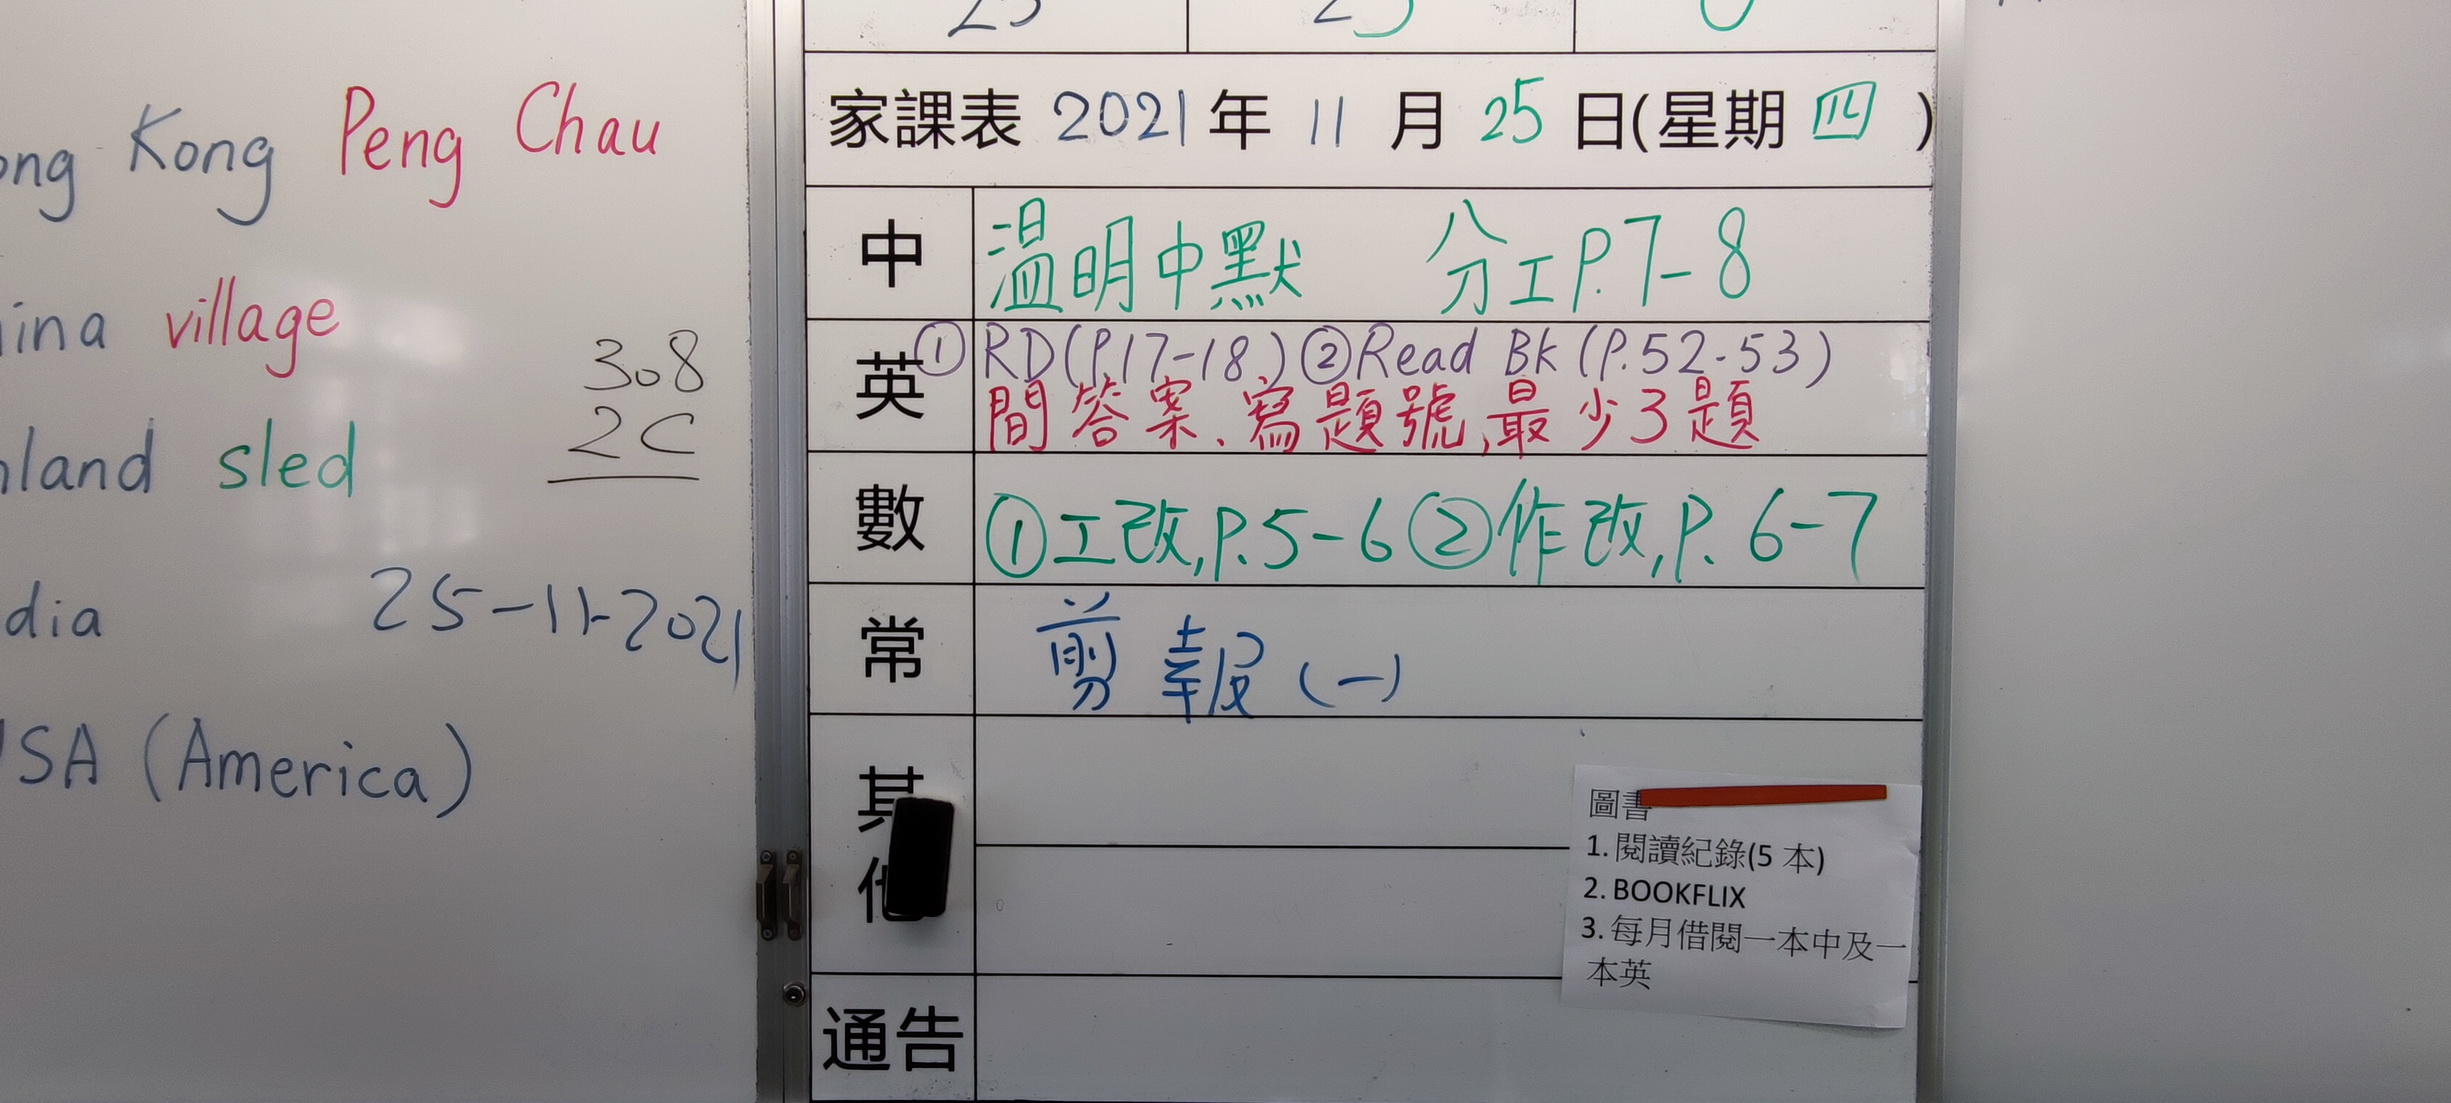 Kong Peng Chau
village
sled
25-11-2021
(America)
308
2C
家課表 2021年 11月 25日(星期四)
中
溫明中默 分工P.7-8
英
① RD(P.17-18) ② Read BK (P.52-53)
間答案、寫題號,最少3題
數
①工改,P.5-6 ②作改,P.6-7
常
剪報(一)
其他
圖書
1. 閱讀紀錄(5 本)
2. BOOKFLIX
3. 每月借閱一本中及一
本英
通告